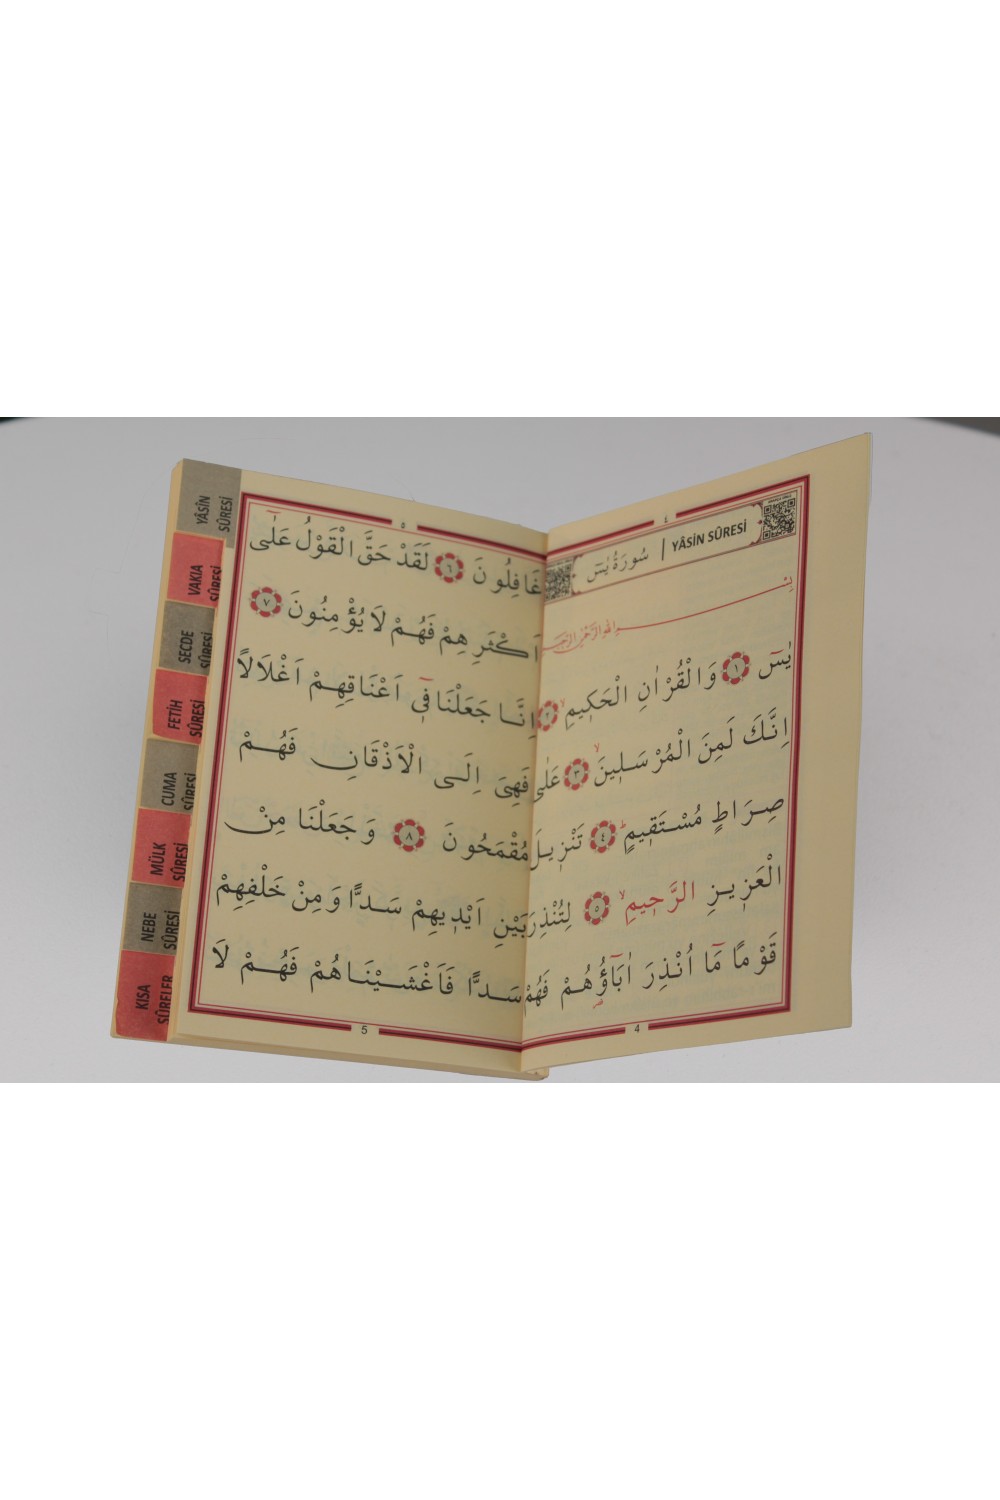 ٤
سُورَةُ يٰسٓ | YÂSİN SÛRESİ
بِسْمِ اللهِ الرَّحْمٰنِ الرَّحِيمِ
يٰسٓ ﴿١﴾ وَالْقُرْاٰنِ الْحَك۪يمِۙ ﴿٢﴾
اِنَّكَ لَمِنَ الْمُرْسَل۪ينَۙ ﴿٣﴾ عَلٰى
صِرَاطٍ مُسْتَق۪يمٍۜ ﴿٤﴾ تَنْز۪يلَ
الْعَز۪يزِ الرَّح۪يمِۙ ﴿٥﴾ لِتُنْذِرَ
قَوْمًا مَٓا اُنْذِرَ اٰبَٓاؤُ۬هُمْ فَهُمْ
4
٥
غَافِلُونَ ﴿٦﴾ لَقَدْ حَقَّ الْقَوْلُ عَلٰٓى
اَكْثَرِهِمْ فَهُمْ لَا يُؤْمِنُونَ ﴿٧﴾
اِنَّا جَعَلْنَا ف۪ٓي اَعْنَاقِهِمْ اَغْلَالًا
فَهِيَ اِلَى الْاَذْقَانِ فَهُمْ
مُقْمَحُونَ ﴿٨﴾ وَجَعَلْنَا مِنْ
بَيْنِ اَيْد۪يهِمْ سَدًّا وَمِنْ خَلْفِهِمْ
سَدًّا فَاَغْشَيْنَاهُمْ فَهُمْ لَا
5
YÂSİN SÛRESİ
VAKIA SÛRESİ
SECDE SÛRESİ
FETİH SÛRESİ
CUMA SÛRESİ
MÜLK SÛRESİ
NEBE SÛRESİ
KISA SÛRELER